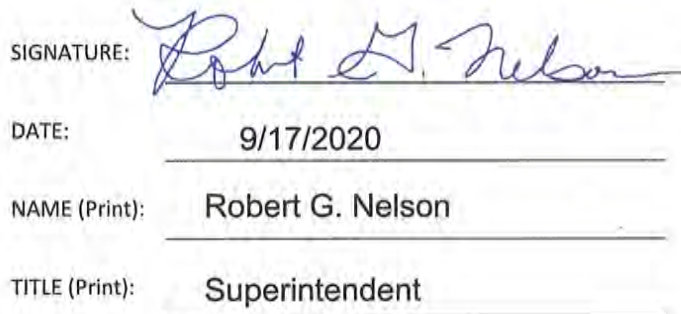 SIGNATURE: Robert G. Nelson
DATE: 9/17/2020
NAME (Print): Robert G. Nelson
TITLE (Print): Superintendent